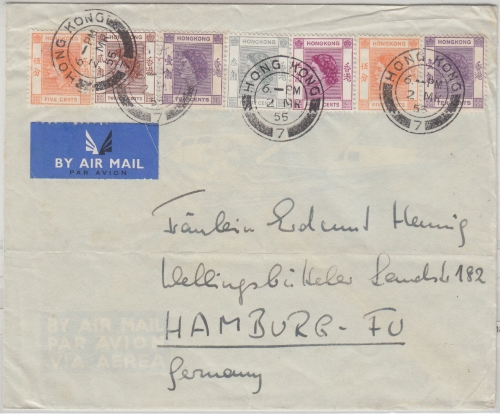 HONGKONG HONGKONG HONGKONG HONGKONG HONGKONG HONGKONG HONGKONG
FIVE CENTS TEN CENTS FIVE CENTS TEN CENTS
HONG KONG
6 - PM
2 MR
55
7
HONG KONG
6 - PM
2 MR
55
7
HONG KONG
6 - PM
2 MR
55
7
BY AIR MAIL
PAR AVION
Fräulein Erdmunt Hennig
Wellingsbütteler Landstr 182
HAMBURG - FU
Germany
BY AIR MAIL
PAR AVION
VIA AEREA